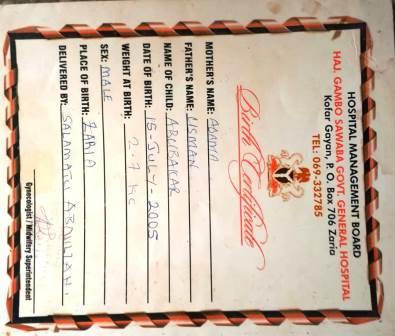 HOSPITAL MANAGEMENT BOARD
HAJ. GAMBO SAWABA GOVT. GENERAL HOSPITAL
Kofar Gayan, P. O. Box 706 Zaria
TEL: 069-332785
Birth Certificate
MOTHER'S NAME:
FATHER'S NAME: USMAN
NAME OF CHILD: ABUBAKAR
DATE OF BIRTH: 15-JULY-2005
WEIGHT AT BIRTH: 2.7 KG
SEX: MALE
PLACE OF BIRTH: ZARIA
DELIVERED BY: SALAMATU
Gynecologist / Midwifery Superintendent